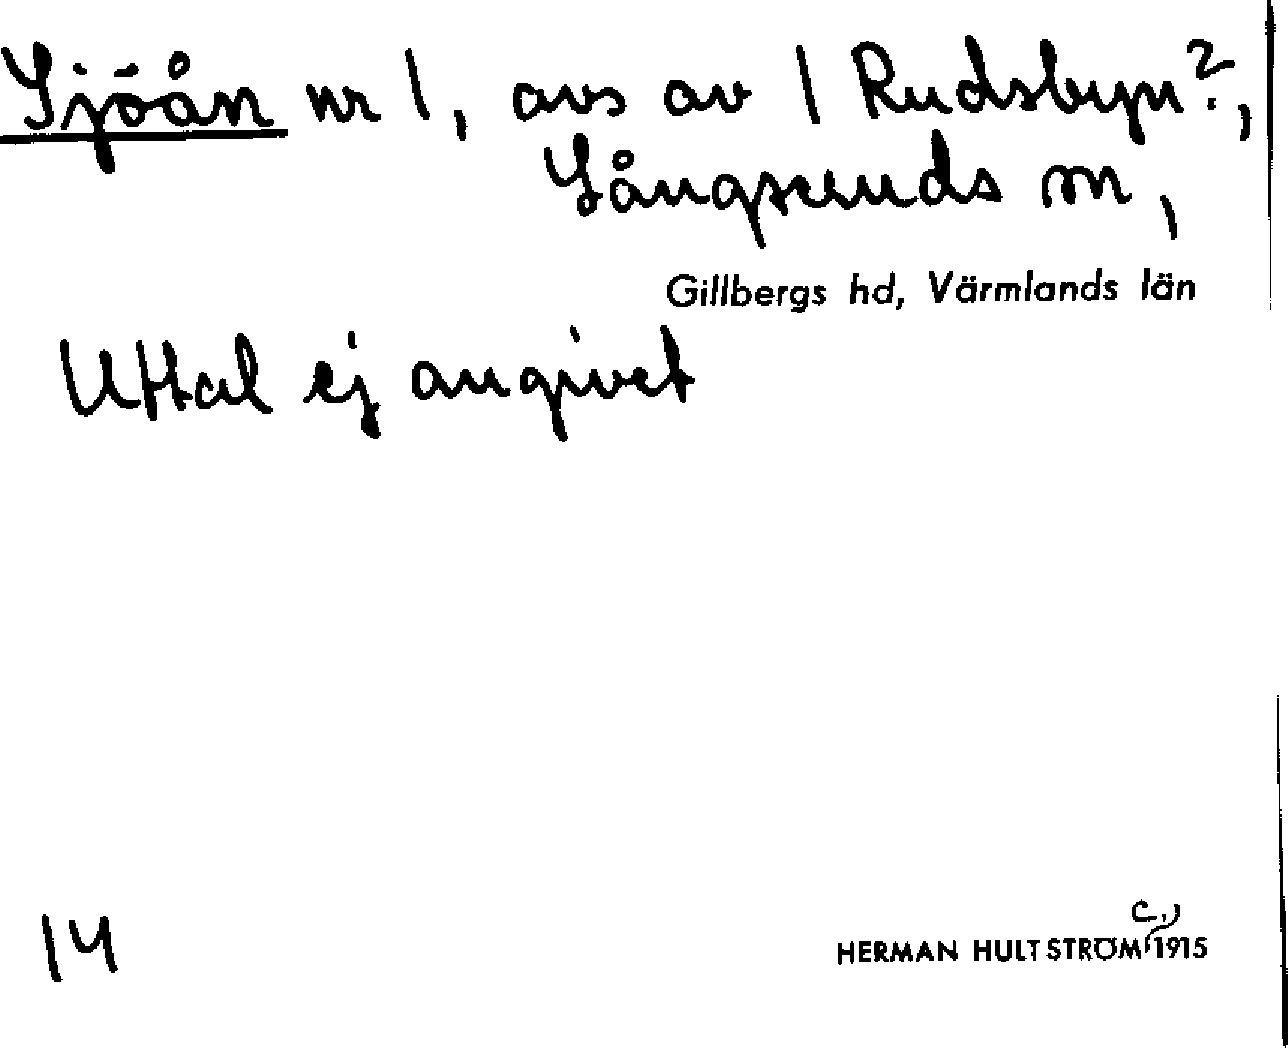 Sjöån nr 1, avs av 1 Rudsbyn?,
Långseruds sn,
Gillbergs hd, Värmlands län
Uttal ej angivet
14
c.
HERMAN HULTSTRÖM 1915